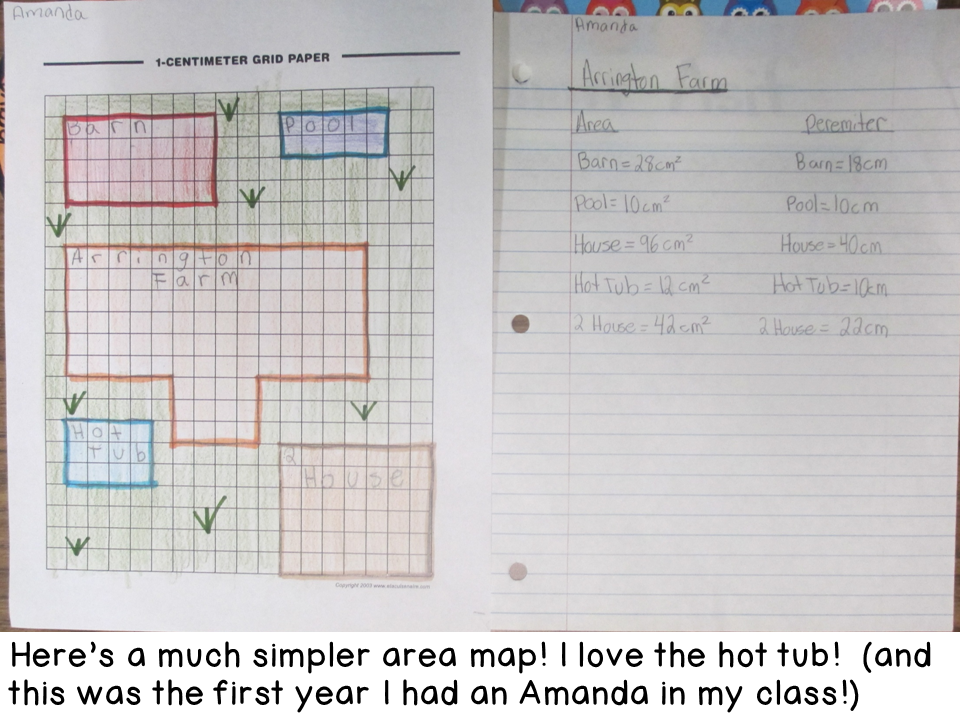 Amanda
1-CENTIMETER GRID PAPER
Barn
Pool
Arrington
Farm
Hot
Tub
2
House
Amanda
Arrington Farm
Area Peremiter
Barn=28cm² Barn=18cm
Pool=10cm² Pool=10cm
House=96cm² House=40cm
Hot Tub=12cm² Hot Tub=10cm
2 House=42cm² 2 House=22cm
Here's a much simpler area map! I love the hot tub! (and
this was the first year I had an Amanda in my class!)